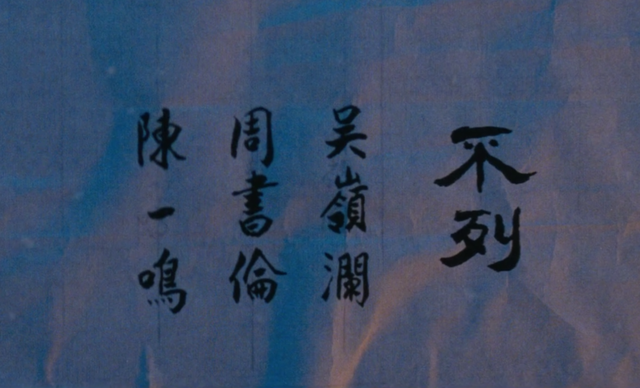 不列
吳嶺瀾
周書倫
陳一鳴